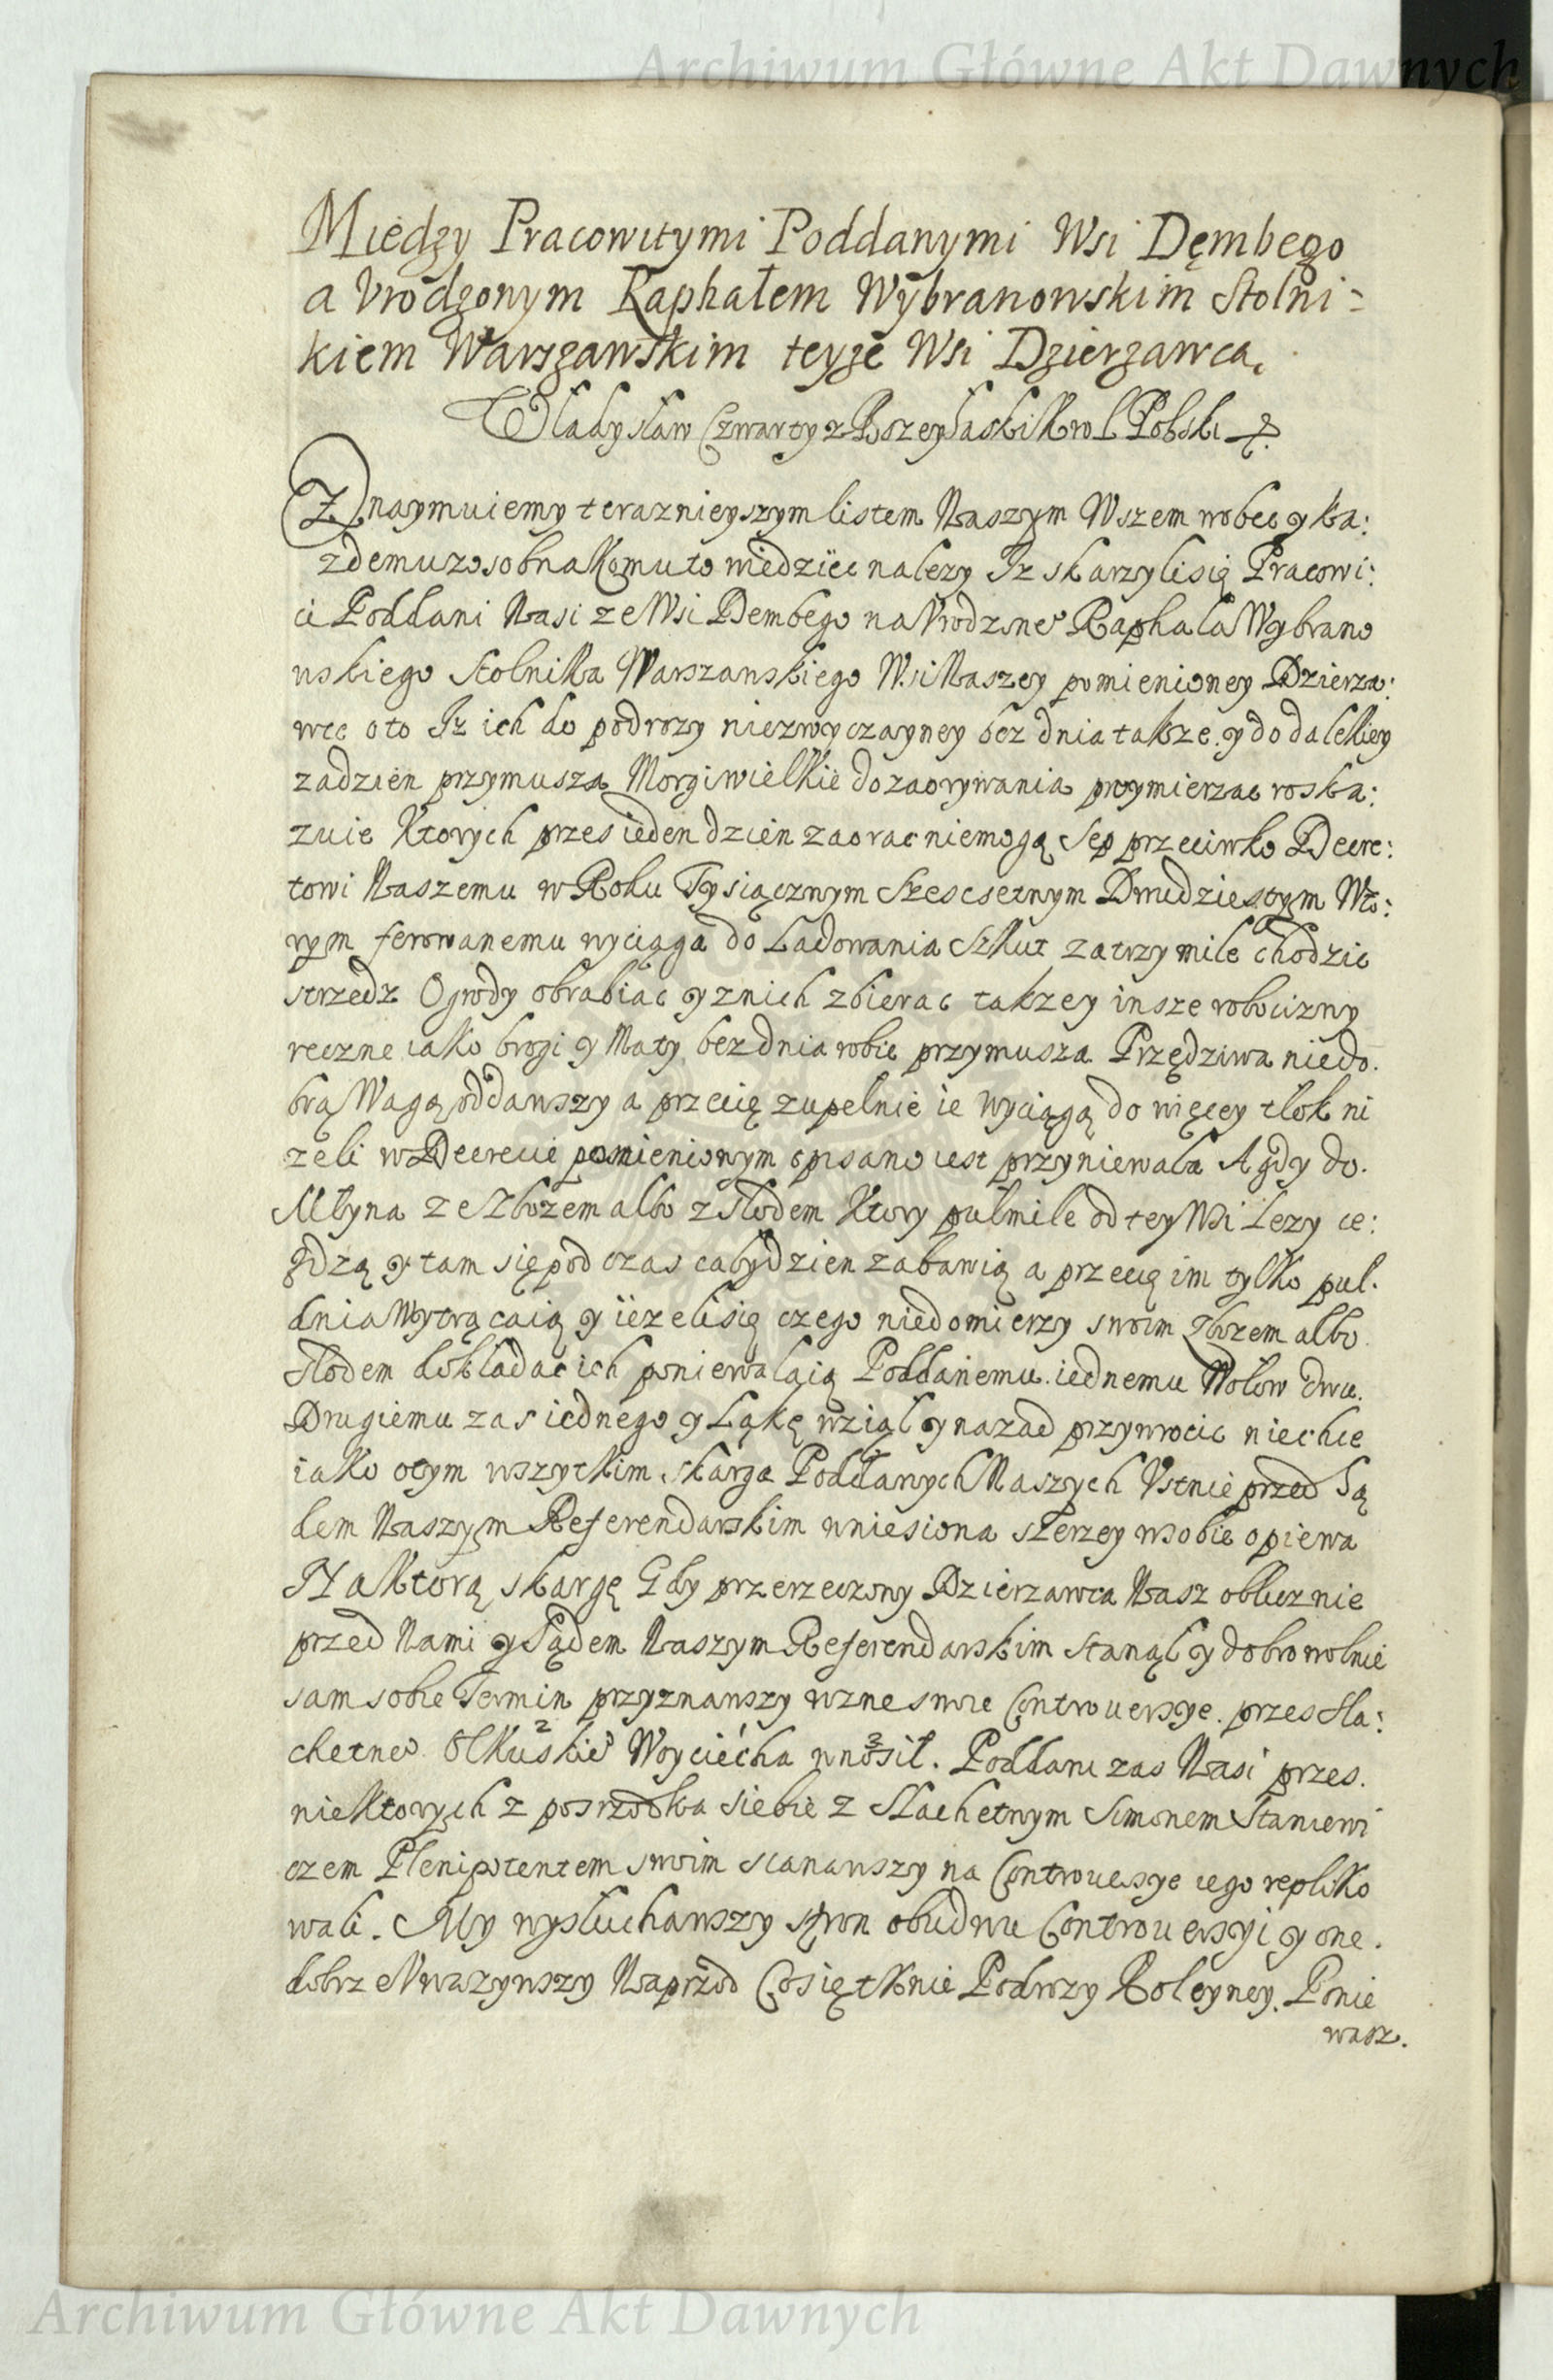 Archiwum Główne Akt Dawnych
Między Pracowitymi Poddanymi Wsi Dęmbego
a Vrodzonym Raphałem Wybranowskim Stolni=
kiem Warszawskim teyże Wsi Dzierzawcą.
Władysław Czwarty z Bożey Łaski Krol Polski
Oznaymuiemy teraznieyszym listem Naszym Wszem wobec y ka:
zdemu zosobna Komu to wiedziec nalezy Iz skarzyli się Pracowi:
ci Poddani Nasi ze Wsi Dembego na Vrodzone° Raphala Wybrano
wskiego Stolnika Warszawskiego Wsi Naszey pomienioney Dzierza:
wce oto Iz ich do podrozy niezwyczayney bez dnia takze y do dalekiey
za dzien przymusza Morgi wielkie do zaorywania przymierzac roska:
zuie Ktorych przes ieden dzien zaorac niemogą Sep przeciwko Decre:
towi Naszemu w Roku Tysiącznym Szescsetnym Dwudziestym Wto:
rym ferowanemu wyciąga do Ladowania Szkut za trzy mile chodzic
strzedz Ogrody obrabiac y znich zbierac takze y insze robocizny
reczne iako brogi y Maty bez dnia robic przymusza Przędziwa niedo.
brą Wagą oddawszy a przecię zupelnie ie wyciągą do więcey tlok ni
zeli w Decrecie pomienionym opisano iest przyniewala A gdy do.
Młyna ze Zbozem albo z słodem Ktory pulmile od tey Wsi lezy ie:
zdzą y tam się pod czas caly dzien zabawią a przecię im tylko pul.
dnia Wytrącaią y iezeli się czego niedomierzy swoim Zbozem albo
słodem dokladac ich poniewalaią Poddanemu iednemu Wolow dwu.
Drugiemu zas iednego y Łąkę wziąl y nazad przywrocic niechce
iako o tym wszytkim skarga Poddanych Naszych Vstnie przed Są
dem Naszym Referendarskim wniesiona szerzey wsobie opiewa
Na Ktorą skargę Gdy przerzeczony Dzierzawca Nasz oblicznie
przed Nami y Sądem Naszym Referendarskim stanąl y dobrowolnie
sam sobie Termin przyznawszy wzne swoie Controuersye przes Sla:
chetne° Olkuskie° Woyciecha wnosił. Poddani zas Nasi przes.
niektorych z posrzodka siebie z Slachetnym Simonem Staniewi
czem Plenipotentem swoim stanawszy na Controuersye iego repliko
wali. My wysluchawszy stron obudwu Controuersyi y one.
dobrze Vwazywszy Naprzod Co się tknie Podrozy Koleyney. Ponie
wasz.
Archiwum Główne Akt Dawnych